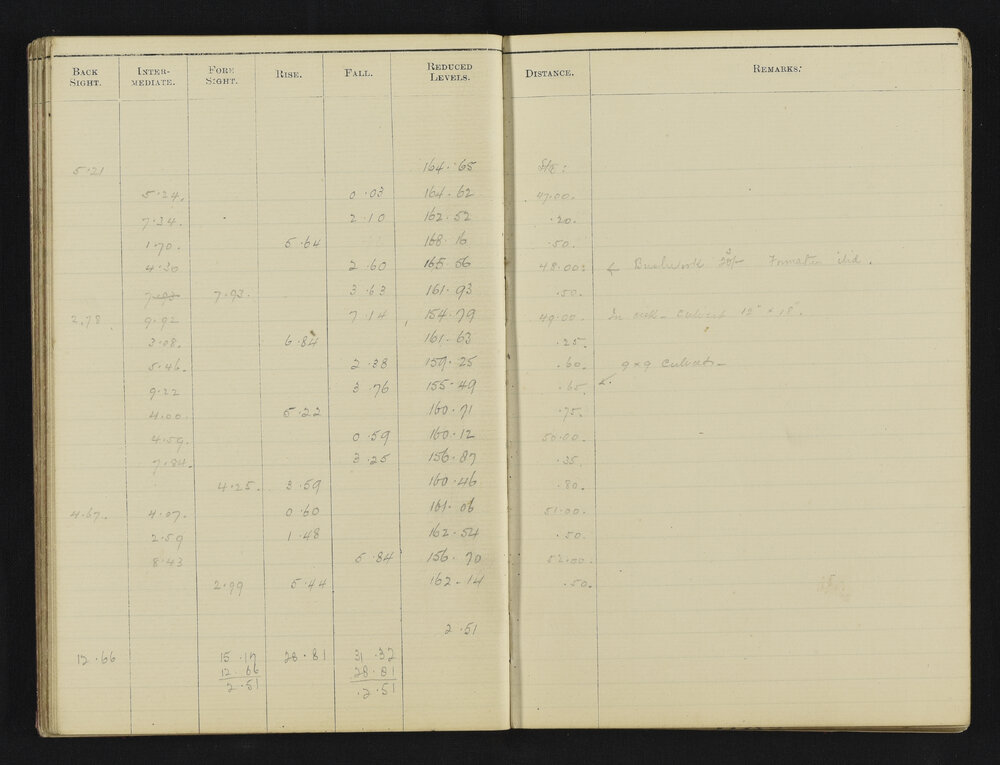 BACK SIGHT. INTER-MEDIATE. FORE SIGHT. RISE. FALL. REDUCED LEVELS. DISTANCE. REMARKS.
5.21 164.65
5.24. 0.03 164.62 47.00.
7.34. 2.10 162.52 .20.
1.70. 6.64 168.16 .50.
4.30 2.60 165.56 48.00: Formation
7.93 7.93. 3.63 161.93 .50.
2.78 9.92 7.14 154.79 49.00. In culvert 12" x 18".
3.08. 6.84 161.63 .25.
5.46. 2.38 159.25 .60. 9x9 Culvert
9.22 3.76 155.49 .65.
4.00. 5.22 160.71 .75.
4.59. 0.59 160.12 50.00.
7.84. 3.25 156.87 .35.
4.25. 3.59 160.46 .80.
4.67. 4.07. 0.60 161.06 51.00.
2.59 1.48 162.54 .50.
8.43 5.84 156.70 52.00.
2.99 5.44 162.14 .50.
2.51
12.66 15.17 28.81 31.32
12.66 28.81
2.51 .2.51